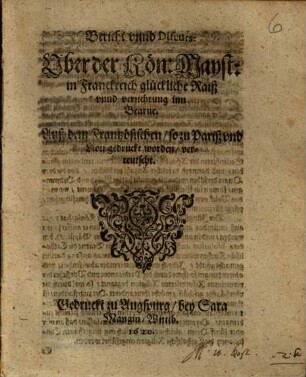 6
Bericht vnnd Discurs:
Vber der Kön: Mayst:
in Franckreich glückliche Raiß
vnnd verrichtung inn
Bearne.
Auß dem Frantzösischen / so zu Pariß vnd
Lion gedruckt worden, ver-
teutscht.
Gedruckt zu Augspurg / bey Sara
Mangin / Wittib.
1620.